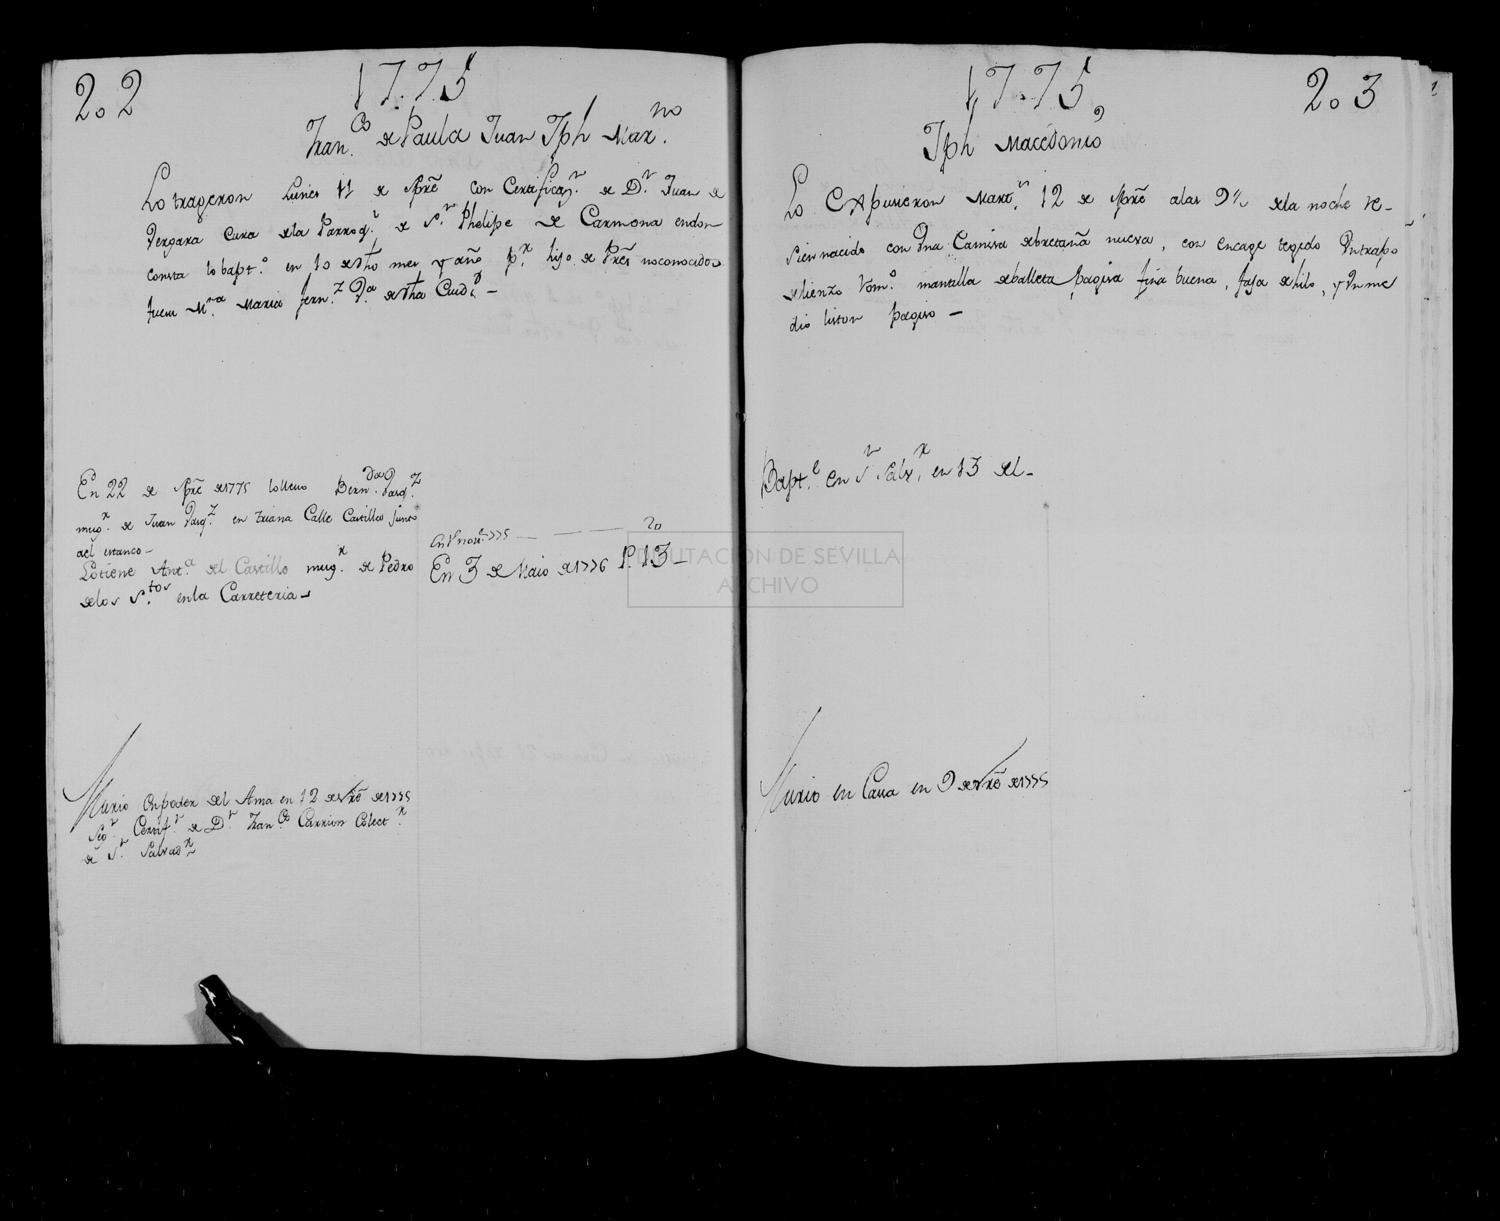 202
1775
Fran.co de Paula Juan Jph Mar.no
Lo trageron Lunes 11 de Spre con Certificaz.n de D.n Juan de
Vergara Cura dela Parroq.l de S.n Phelipe de Carmona endon
consta lo bapt.o en 10 de dho mes y año p.r hijo de Pres noconocidos
fuem M.na Maria Fern.z V.a de dha Ciud.d —
En 22 de Spre de 1775 lo llevo Bern.da Vasq.z
mug.r de Juan Vasq.z en triana Calle Castilla junto
ael estanco —
Lo tiene Ant.a del Castillo mug.r de Pedro
delos S.tos enla Carreteria —
En 1 nov.e 775 — — 20
En 3 de Maio de 1776 P. 13 —
Murio en poder del Ama en 12 de Vre de 1775
Seg.n Certif.n de D.n Fran.co Carrion Colect.r
de S.n Salvad.r
1775
203
Jph Macedonio
Lo Expusieron Mart.s 12 de Spre alas 9½ dela noche re-
sien nacido con Una Camisa de bretaña nueva, con encage tegido Untrapo
de lienzo tom.o mantilla de balleta pagisa fina buena, faja de hilo, y Un me
dio liston pagiso —
Bapt.e en S.n Salv.r en 13 del —
Murio en Casa en 9 de Vre de 1775
DIPUTACIÓN DE SEVILLA
ARCHIVO